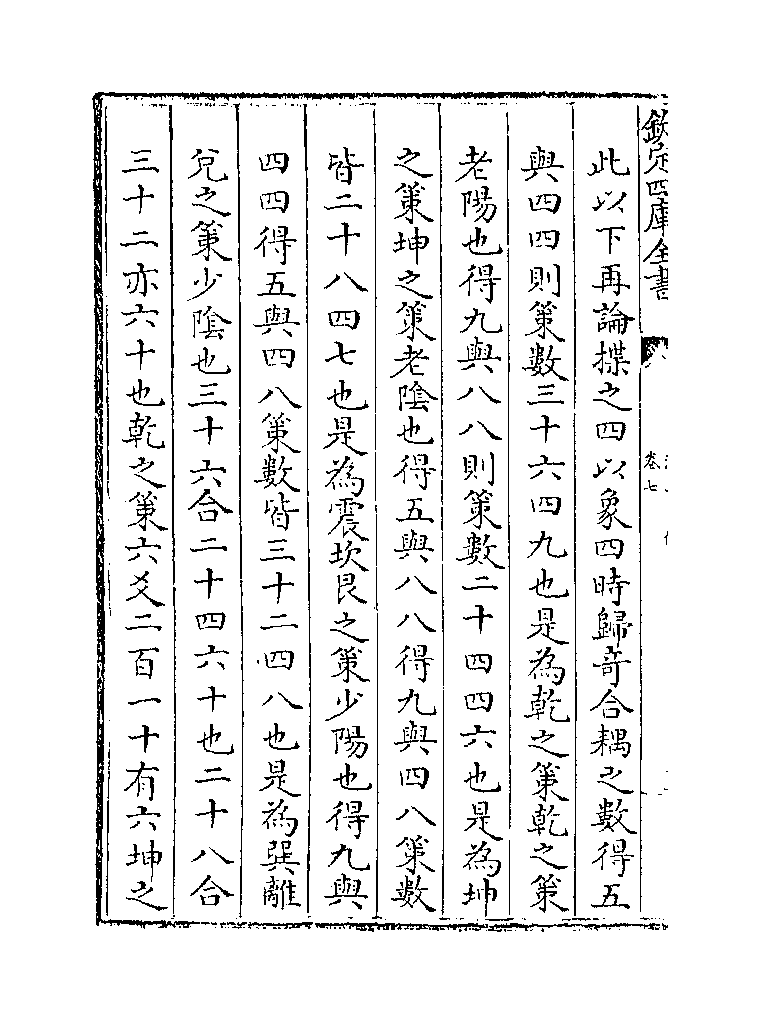 欽定四庫全書
卷七
此以下再論揲之四以象四時歸奇合耦之數得五
與四四則策數三十六四九也是為乾之策乾之策
老陽也得九與八八則策數二十四四六也是為坤
之策坤之策老陰也得五與八八得九與四八策數
皆二十八四七也是為震坎艮之策少陽也得九與
四四得五與四八策數皆三十二四八也是為巽離
兌之策少陰也三十六合二十四六十也二十八合
三十二亦六十也乾之策六爻二百一十有六坤之